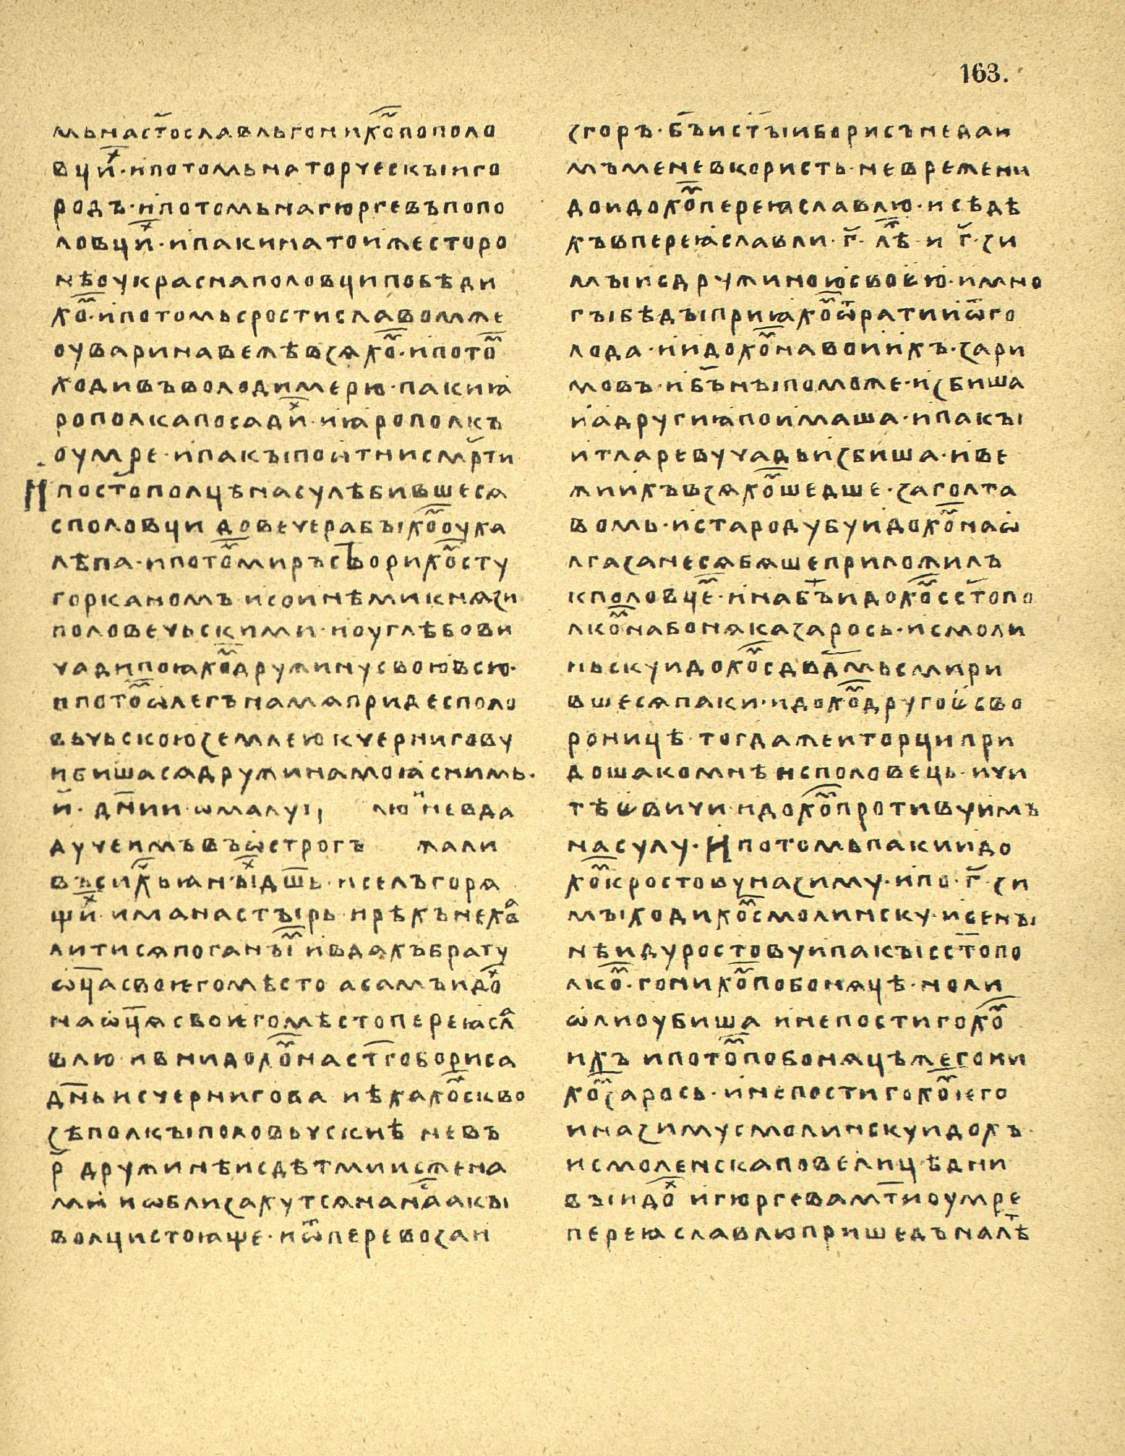 163.
мьнастославльгоникопополо
вци·ипотомьнаторческыиго
родъ·ипотомьнагюргевъпопо
ловци·ипакинатоижесторо
нѣоукраснаполовципобѣди
хо·ипотомьсростиславомже
оуваринавежѣвзяхо·ипото
ходивъволодимерю·пакиꙗ
рополкапосади·иꙗрополкъ
оумре·ипакыпоотнисмрти
ипостополцѣнасулѣбившеся
споловцидовечерабыхооука
лѣпа·ипотомиръствориховсту
горканомъ·исоинѣмикнязи
половечьскими·иоуглѣбови
чадипоꙗходружинусвоювсю·
ипотоѡлегънамяпридесполо
вьчьскоюземлеюкчернигову
ибишасядружинамоꙗснимь·
и·днии·ѡмалу лю иневда
дучеимъвъѡстрогъ жали
въсихьꙗныдшь·иселъгоря
щи·иманастырь·ирѣхънехва
литисяпоганыивдахъбрату
ѡцасвоѥгомѣстоасамъидо
наѡцясвоѥгомѣстопереꙗсла
влю·ивнидохонастгобориса
дньисчерниговаиѣхахосквo
зѣполкыполовьчскиѣневъ
р·дружинѣисдѣтмиисжена
миоблизахутсянанаакы
волцистоꙗще·иѿперевозаи
згоръ·бъистыиборисънедаи
мъменевкористь·невремени
доидохопереꙗславлю·исѣдѣ
хъвпереꙗславли·г·лѣ·и·г·зи
мыисдружиноюсвоею·имно
гыбѣдыприꙗхоѿратииѿго
лода·иидохонавоиихъ·зари
мовъ·ибъныпоможе·избиша
иадругиꙗпоимаша·ипакы
итларевучадьизбиша·иве
жиихъвзяхошедше·заголта
вомь·истародубуидохонаѡ
лгазанесябяшеприложилъ
кполовце·инабъидохосстопо
лконабоняказарось·исмоли
ньскуидохосдвдмьсмири
вшесяпаки·идоходругоесво
роницѣ·тогдажеиторципри
дошакомнѣисполовець·ичи
тѣевичи·идохопротивуимъ
насулу·ипотомьпакиидо
хокростовуназиму·ипо·г·зи
мыходихосмолинску·исены
нѣидуростовуипакысстопо
лко·гонихопобоняцѣ·ноли
ѡлиоубишаинепостигохо
ихъипотопобоняцѣжегони
хозарось·инепостигохоѥго
иназимусмолинскуидохъ·
исмоленскапoвелицѣдни
выидоигюргеваматиоумре
переꙗславлюпришедъналѣ